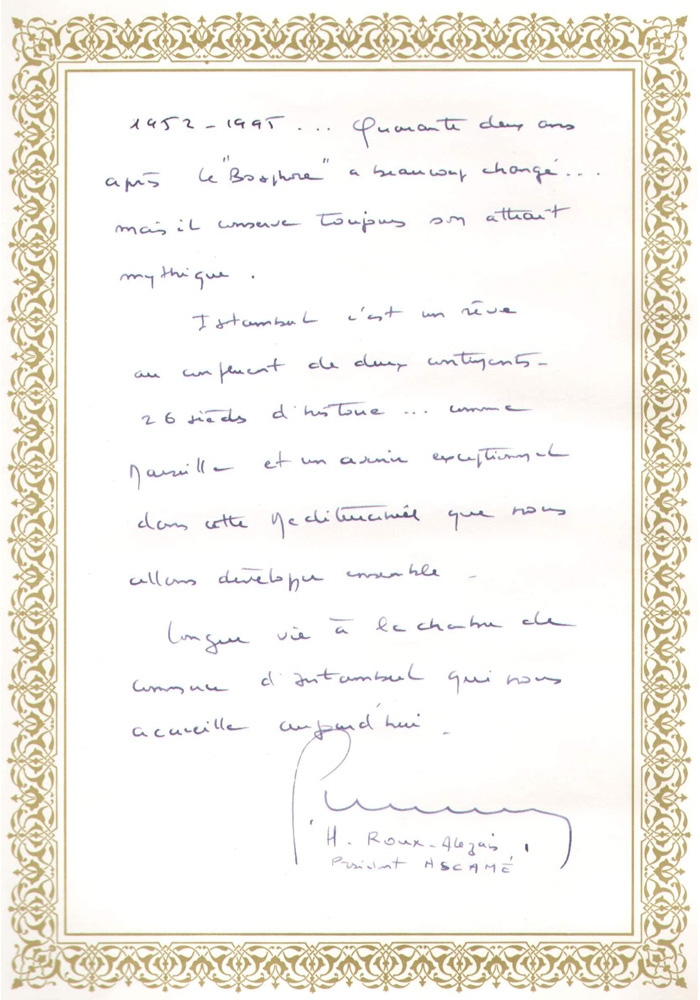 1952 - 1995 ... Quarante deux ans
après le "Bosphore" a beaucoup changé ...
mais il conserve toujours son attrait
mythique .
Istambul c'est un rêve
au confluent de deux continents -
26 siècles d'histoire ... comme
Marseille et un avenir exceptionnel
dans cette Méditerranée que nous
allons développer ensemble -
Longue vie à la chambre de
commerce d'Istambul qui nous
accueille aujourd'hui .
H. Roux-Alezais
Président ASCAME